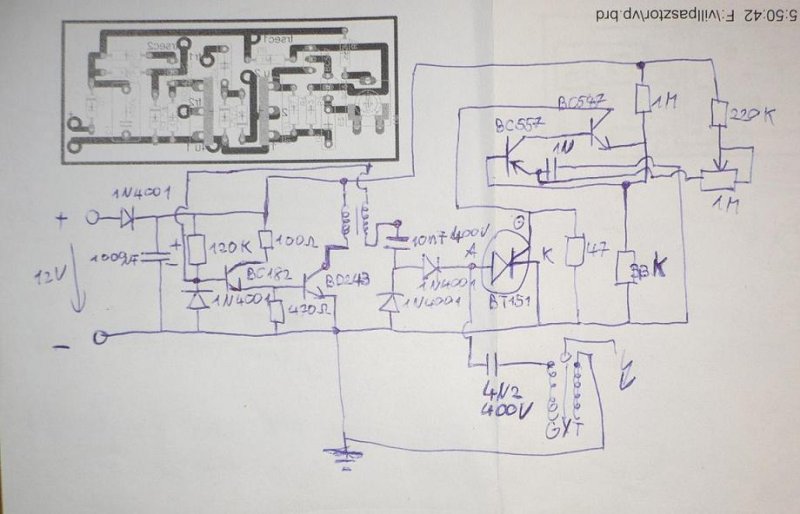 5:50:42 F:\villpasztor\vp.brd
trsec2
trsec1
1M
220K
BC547
BC557
1N
1M
1N4001
+
120K
100Ω
10n 400V
A
G
K
47
33K
12V
BC182
BD243
1N4001
1N4001
BT151
1N4001
420Ω
-
4N2
400V
GYT